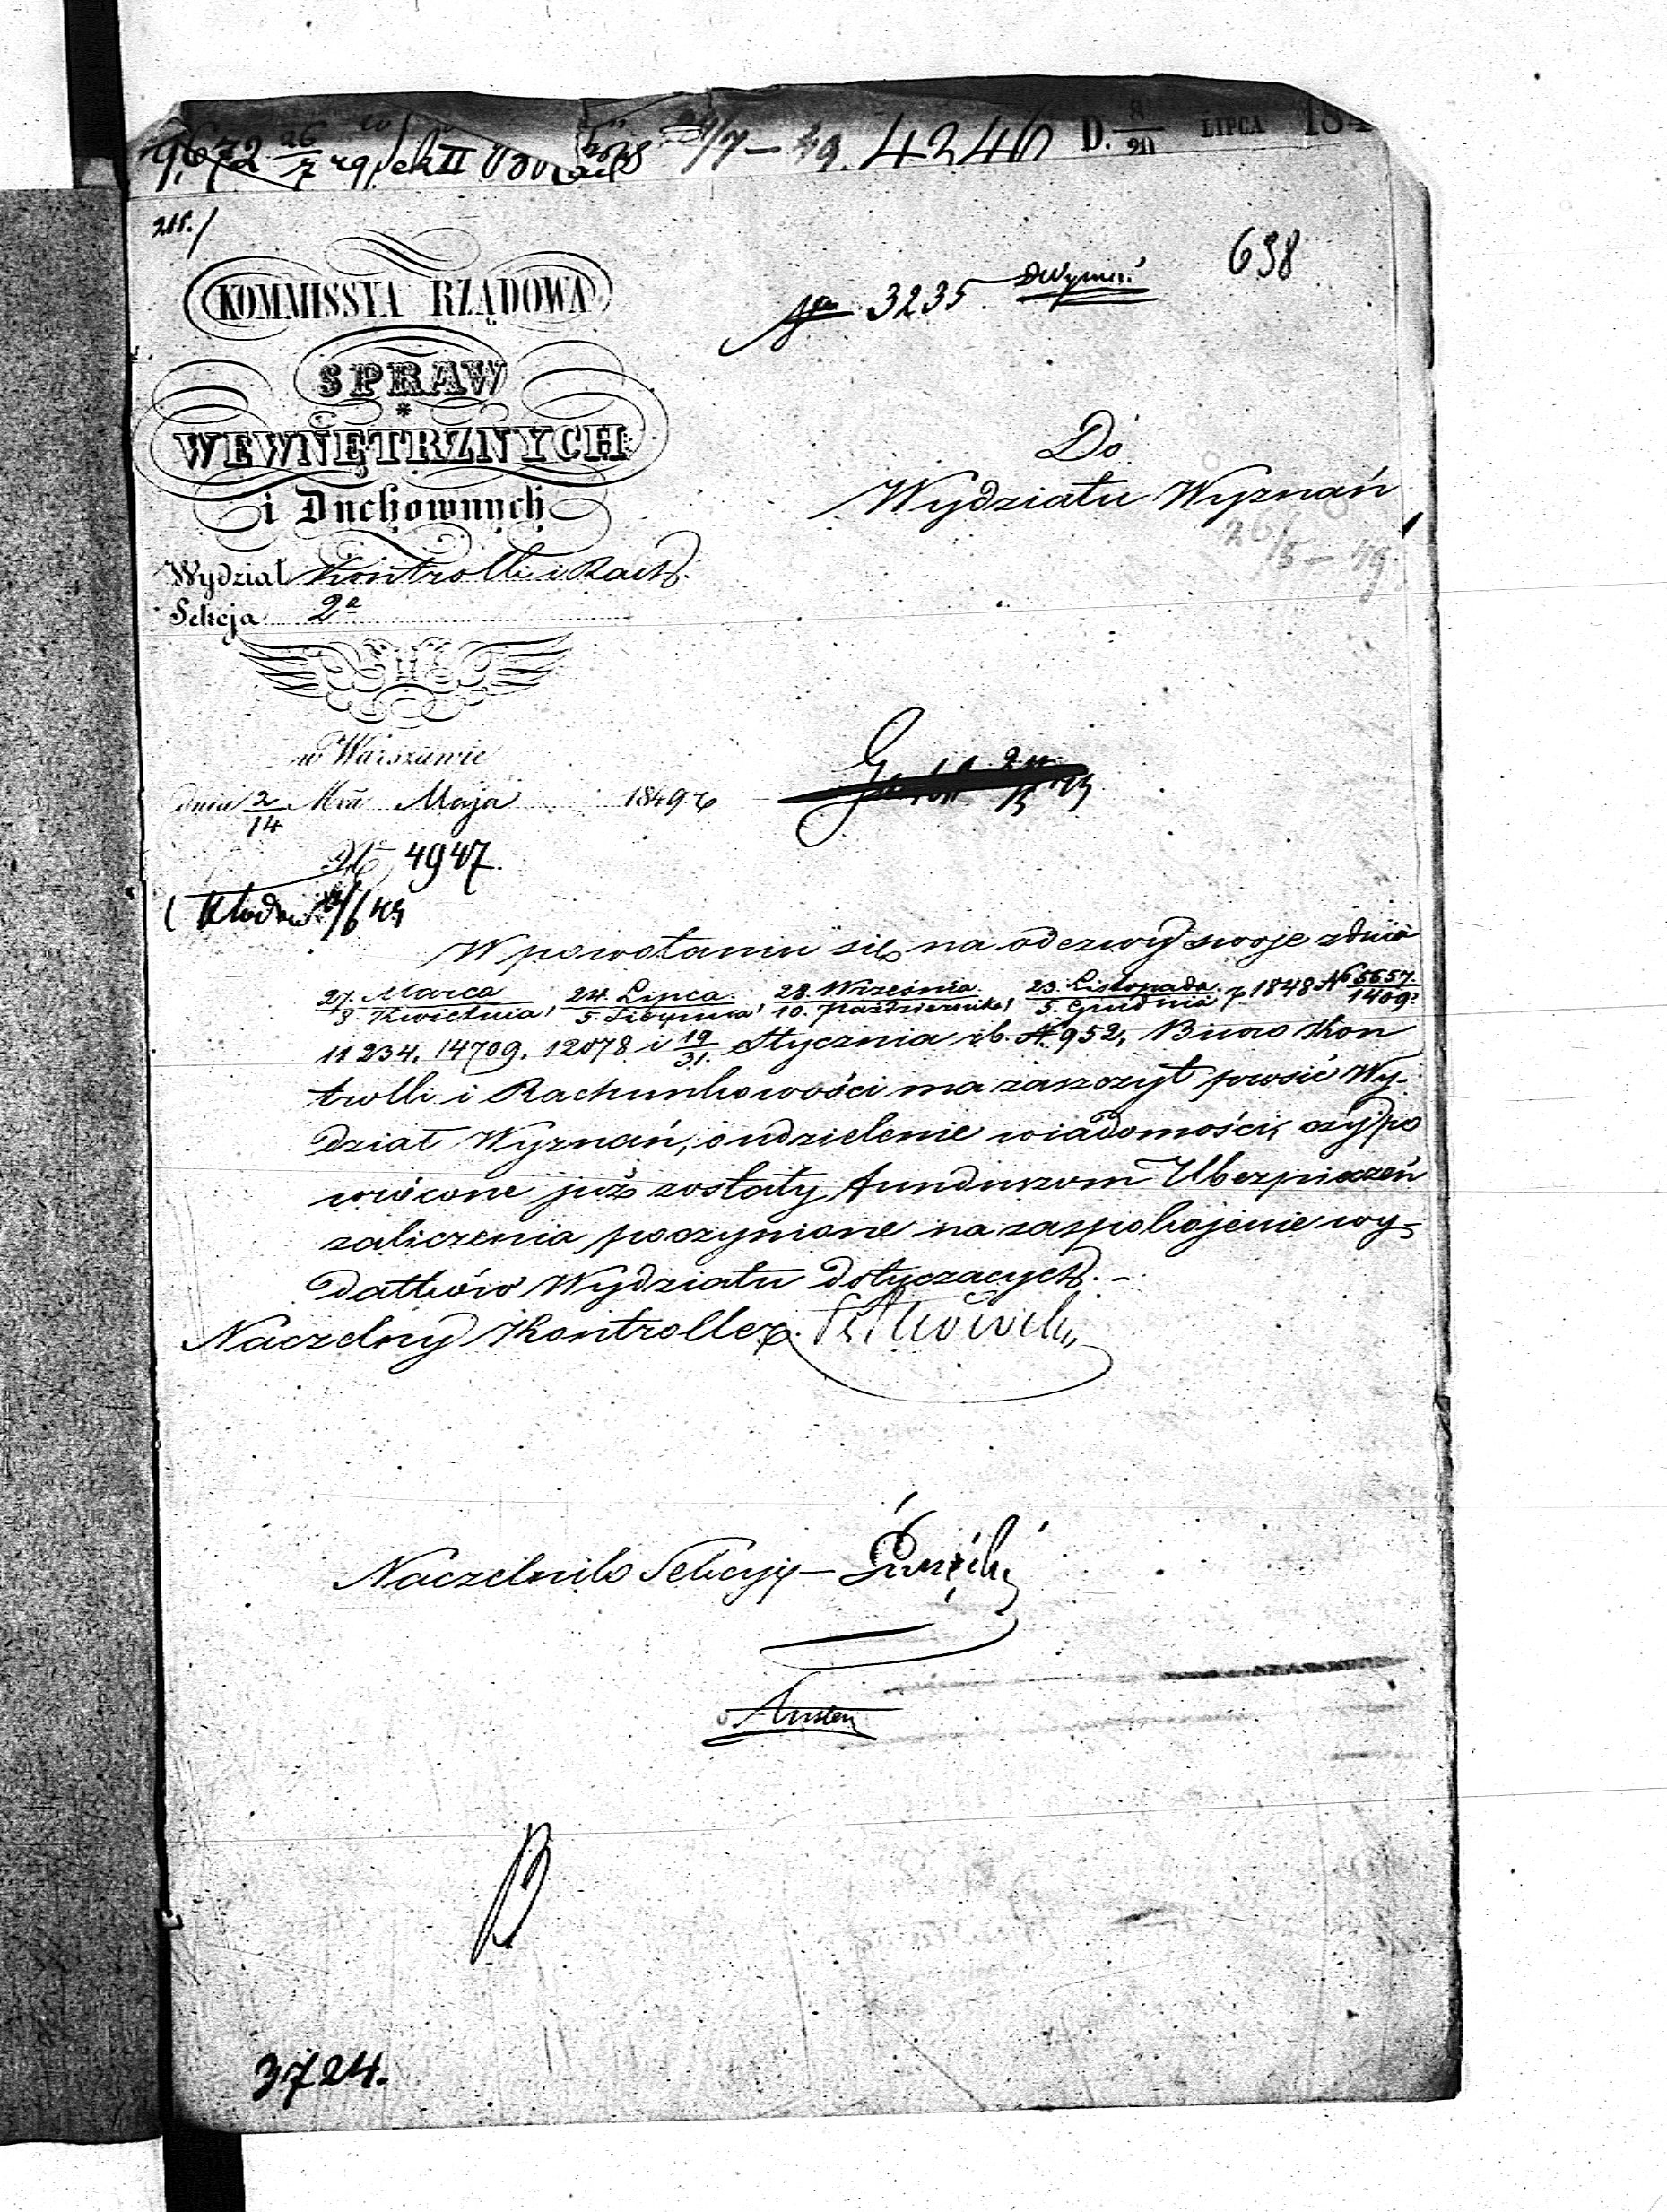 4246 D. 8/20 LIPCA 184
215./
638
3235
KOMMISSYA RZĄDOWA
SPRAW
WEWNĘTRZNYCH
i Duchownych
Do
Wydziału Wyznań
26/5 – 49.
Wydział Kontrolli i Rach.
Sekcja 2a
w Warszawie
dnia 2/14 Mca Maja 1849 r
No 4947.
W powołaniu się na odezwy swoje z dnia
27. Marca/8. Kwietnia, 24. Lipca/5. Sierpnia, 28. Września/10. Października, 23. Listopada/5. Grudnia r. 1848 No 5657/1409.
11234, 14709, 12078 i 19/31. Stycznia r.b. No 952, Biuro Kon
trolli i Rachunkowości ma zaszczyt prosić Wy-
dział Wyznań, o udzielenie wiadomości, czyj po
wrócone już zostały funduszom Ubezpieczeń
zaliczenia poczynione na zaspokojenie wy-
datków Wydziału dotyczących. –
Naczelny Kontroller
Naczelnik Sekcyi –
3724.